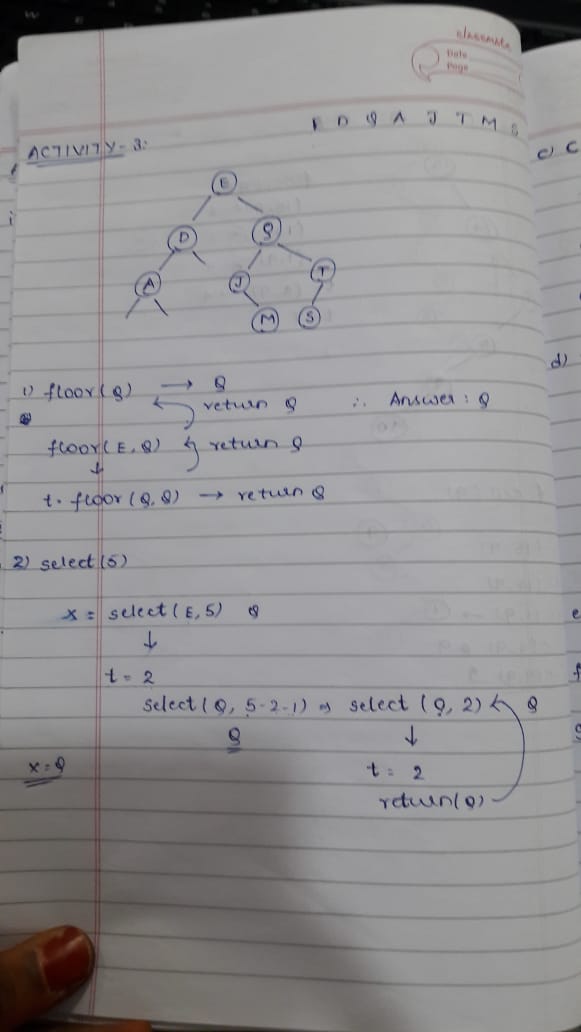 classmate
Date
Page
E D Q A J T M S
ACTIVITY - 3:
c) C
E
D Q
A J T
M S
d)
1) floor(Q) → Q
return Q ∴ Answer : Q
floor(E, Q) return Q
↓
t = floor(Q, Q) → return Q
2) select(5)
x = select(E, 5) Q
↓
t = 2
select(Q, 5-2-1) ⇒ select (Q, 2) Q
Q ↓
x = Q t = 2
return(Q)
e